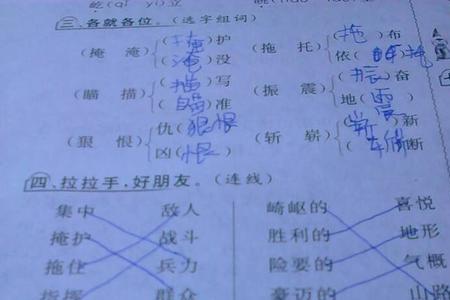 屹(qì yì)立
三、各就各位。(选字组词)
(掩 淹) (掩)护 (拖 托) (拖)布
(淹)没 依(托)
(瞄 描) (描)写 (振 震) (振)奋
(瞄)准 地(震)
(狠 恨) 仇(狠恨) (斩 崭) (崭)新
凶(恨) (斩)断
四、拉拉手,好朋友。(连线)
集中 敌人 崎岖的 喜悦
掩护 战斗 胜利的 地形
拖住 兵力 险要的 气概
指挥 群众 豪迈的 山路